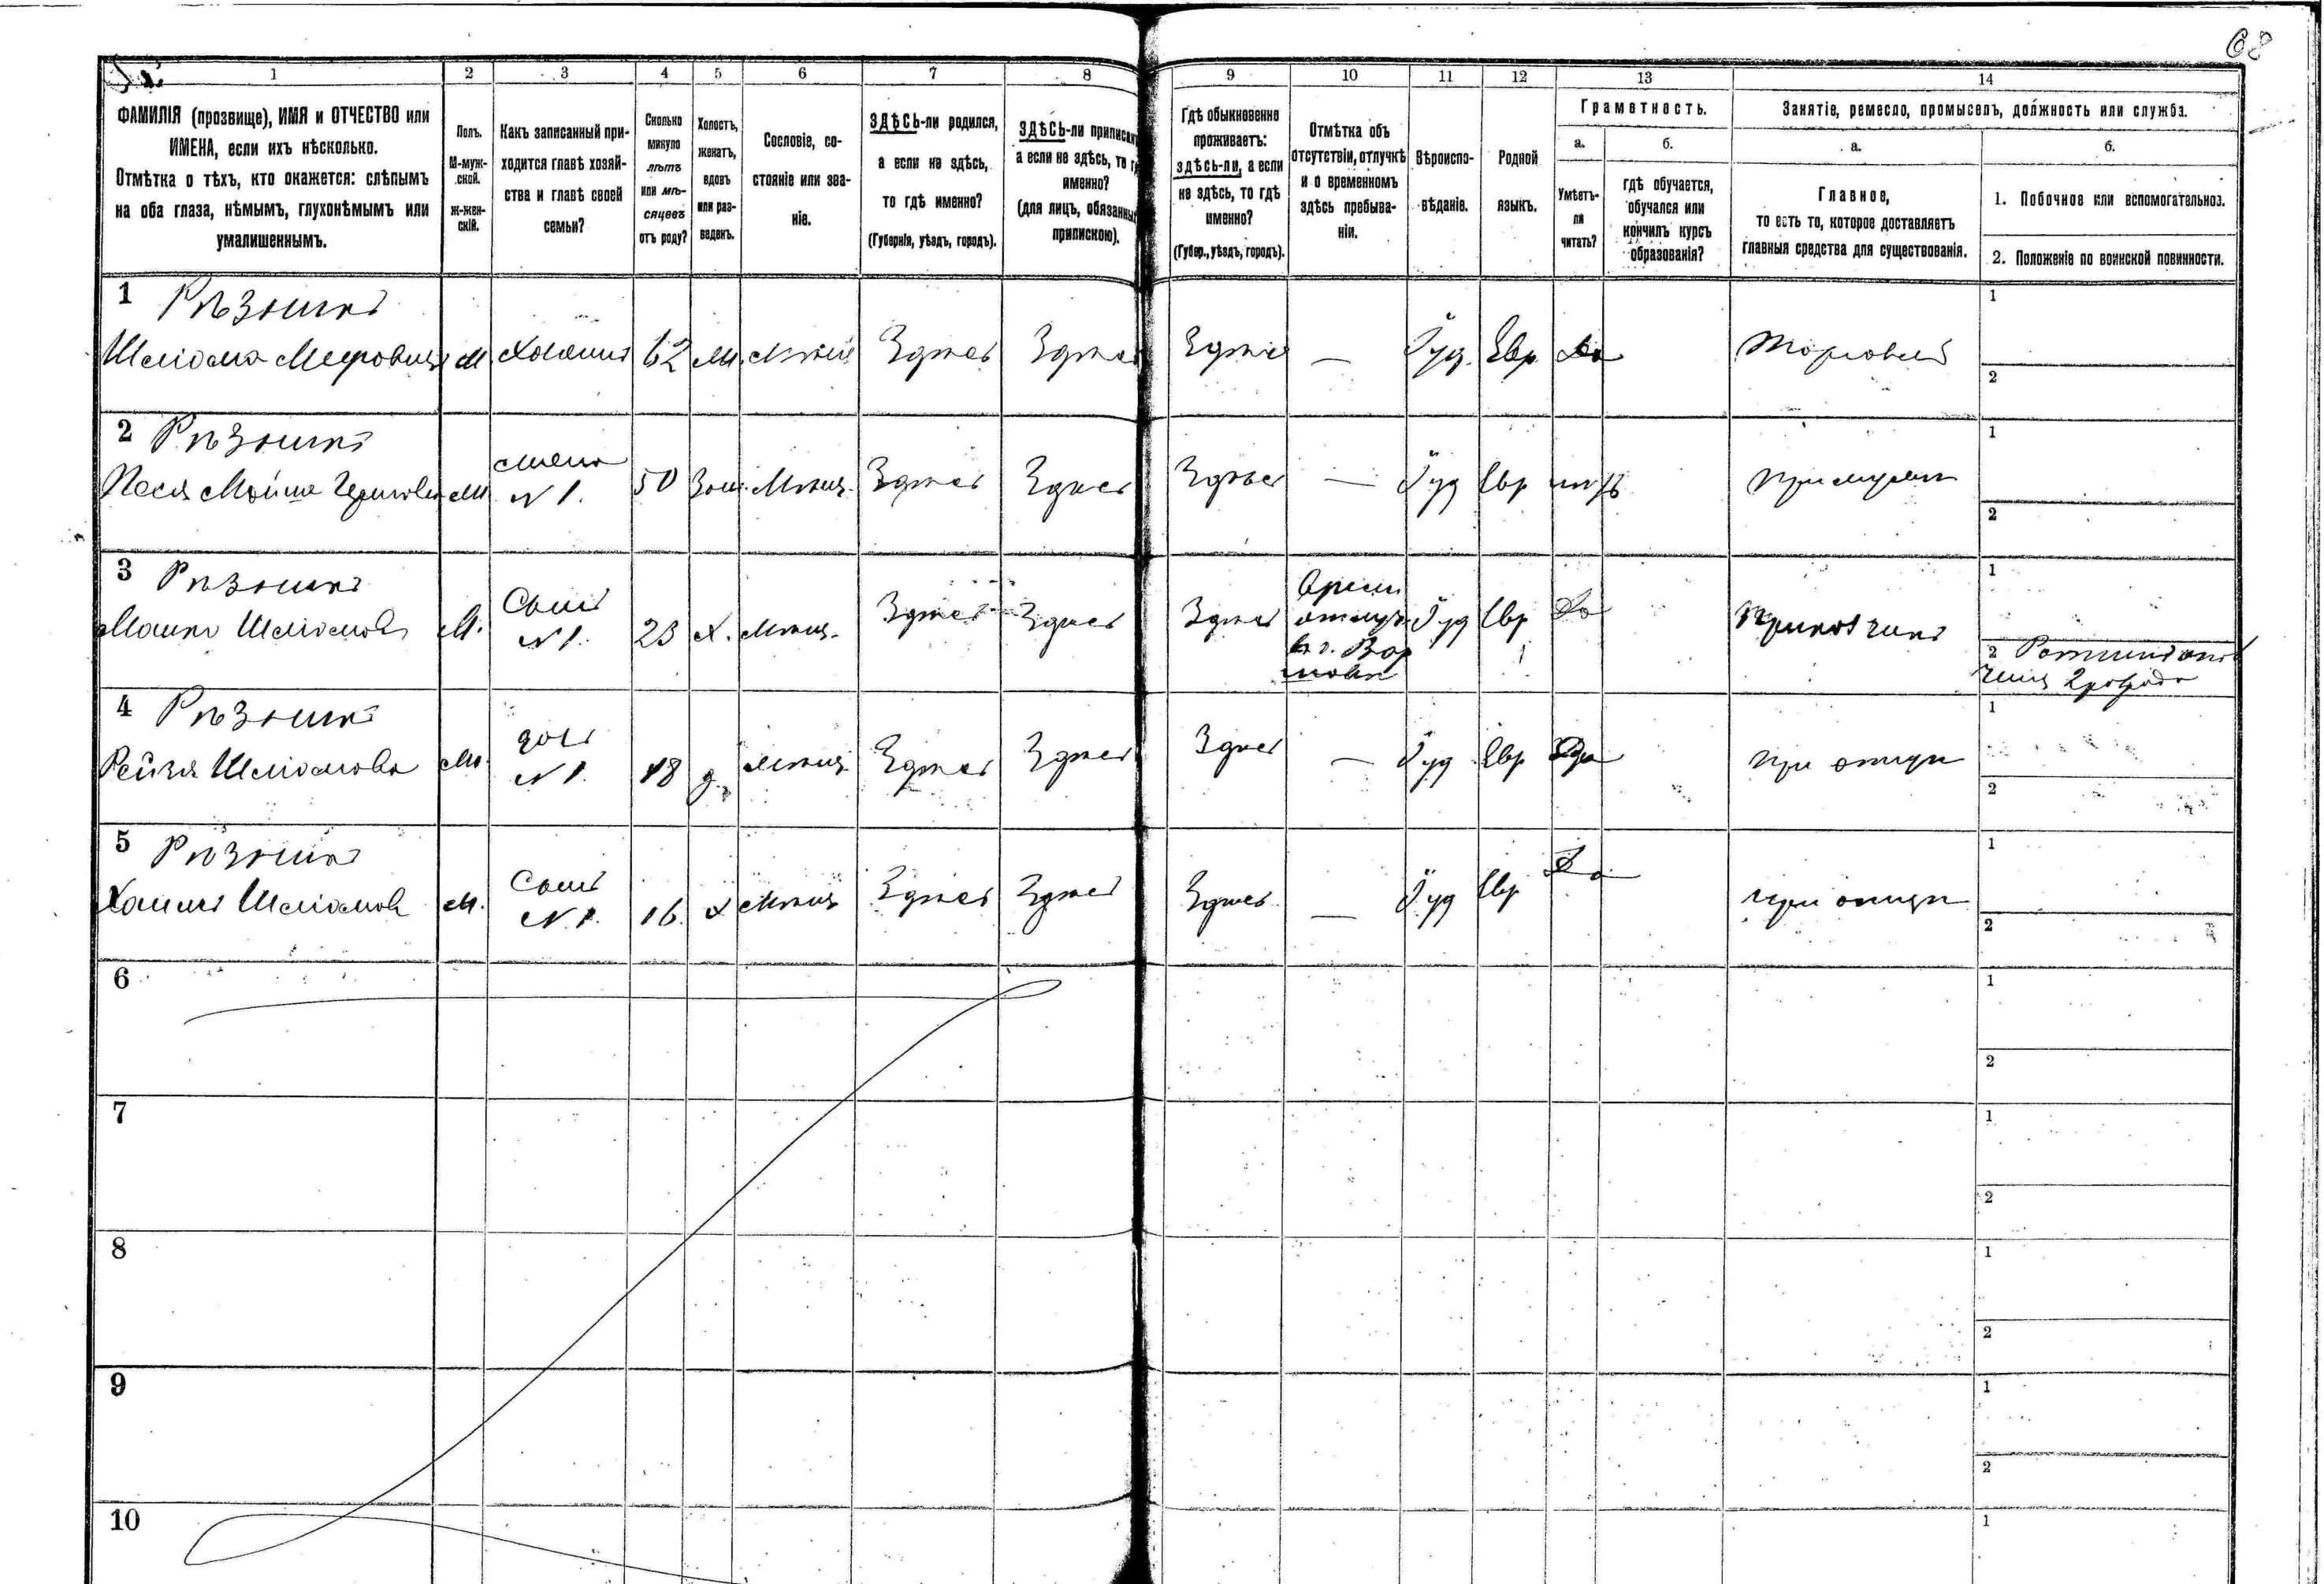 68
1 2 3 4 5 6 7 8 9 10 11 12 13 14
ФАМИЛІЯ (прозвище), ИМЯ и ОТЧЕСТВО или
ИМЕНА, если ихъ нѣсколько.
Отмѣтка о тѣхъ, кто окажется: слѣпымъ
на оба глаза, нѣмымъ, глухонѣмымъ или
умалишеннымъ.
Полъ.
М-муж-
ской.
Ж-жен-
скій.
Какъ записанный при-
ходится главѣ хозяй-
ства и главѣ своей
семьи?
Сколько
минуло
лѣтъ
или мѣ-
сяцевъ
отъ роду?
Холостъ,
женатъ,
вдовъ
или раз-
веденъ.
Сословіе, со-
стояніе или зва-
ніе.
ЗДѢСЬ-ли родился,
а если не здѣсь,
то гдѣ именно?
(Губернія, уѣздъ, городъ).
ЗДѢСЬ-ли приписанъ
а если не здѣсь, то
именно?
(для лицъ, обязанны
припискою).
Гдѣ обыкновенно
проживаетъ:
здѣсь-ли, а если
не здѣсь, то гдѣ
именно?
(Губер., уѣздъ, городъ).
Отмѣтка объ
отсутствіи, отлучкѣ
и о временномъ
здѣсь пребыва-
ніи.
Вѣроиспо-
вѣданіе.
Родной
языкъ.
Грамотность.
а.
Умѣетъ-
ли
читать?
б.
гдѣ обучается,
обучался или
кончилъ курсъ
образованія?
Занятіе, ремесло, промыселъ, должность или служба.
а.
Главное,
то есть то, которое доставляетъ
главныя средства для существованія.
б.
1. Побочное или вспомогательное.
2. Положеніе по воинской повинности.
1 Рѣзникъ
Шліома Мееровичъ м. Хозяинъ 62 Здѣсь Здѣсь Здѣсь — Іуд. Евр да Торговля
1
2
2 Рѣзникъ
Песя жена N 1. 50 зам. Мѣщ. Здѣсь Здѣсь Здѣсь — Іуд Евр нѣтъ при мужѣ
1
2
3 Рѣзникъ
Шліомов М. Сынъ N 1. 23 х. Мѣщ. Здѣсь Здѣсь Здѣсь
Врем
отлуч.
в г. Вар
шаве
Іуд Евр Да Прикащикъ
1
2 Ратникъ опол
ченія 2 разряда
4 Рѣзникъ
Рейзя Шліомова ж. дочь N 1. 18 д. мѣщ. Здѣсь Здѣсь Здѣсь — Іуд Евр Да при отцѣ
1
2
5 Рѣзникъ
Шліомов М. Сынъ N 1. 16 х Мѣщ Здѣсь Здѣсь Здѣсь — Іуд Евр Да при отцѣ
1
2
6
1
2
7
1
2
8
1
2
9
1
2
10
1